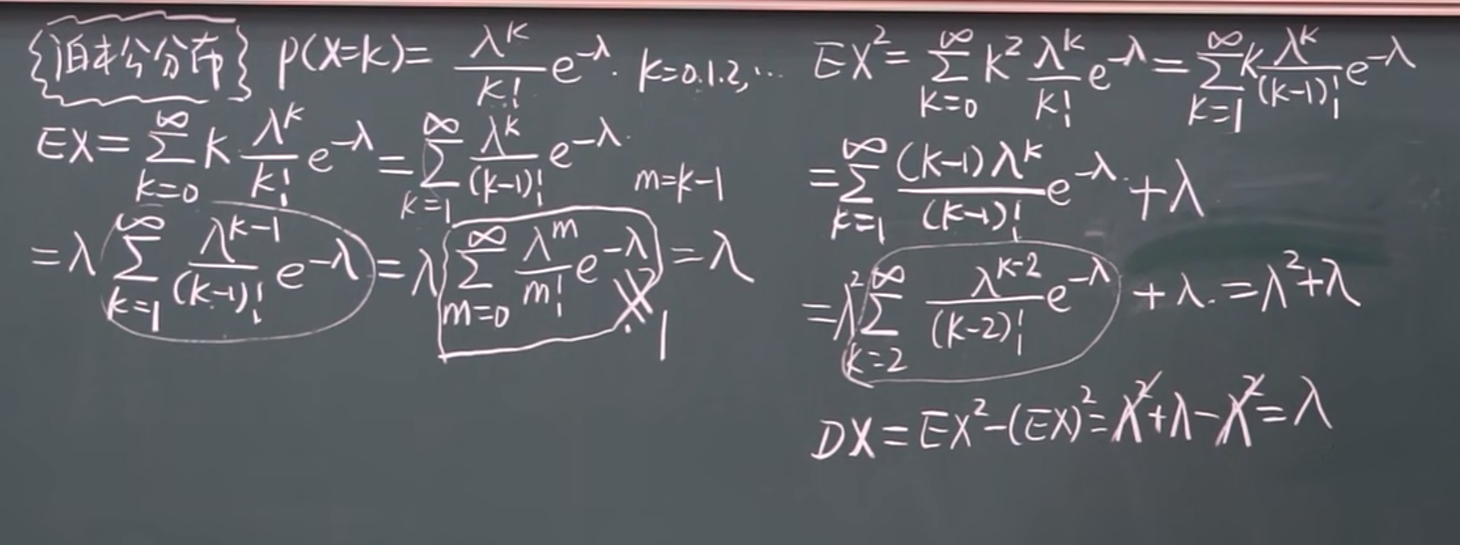 泊松分布 P(X=k)= λ^k/k! e^-λ. k=0.1.2,...
EX= ∑_{k=0}^{∞} k λ^k/k! e^-λ = ∑_{k=1}^{∞} λ^k/(k-1)! e^-λ. m=k-1
=λ ∑_{k=1}^{∞} λ^{k-1}/(k-1)! e^-λ = λ ∑_{m=0}^{∞} λ^m/m! e^-λ = λ
1
EX²= ∑_{k=0}^{∞} k² λ^k/k! e^-λ = ∑_{k=1}^{∞} k λ^k/(k-1)! e^-λ
= ∑_{k=1}^{∞} (k-1)λ^k/(k-1)! e^-λ. +λ
=λ² ∑_{k=2}^{∞} λ^{k-2}/(k-2)! e^-λ + λ. =λ²+λ
DX=EX²-(EX)²=λ²+λ-λ²=λ